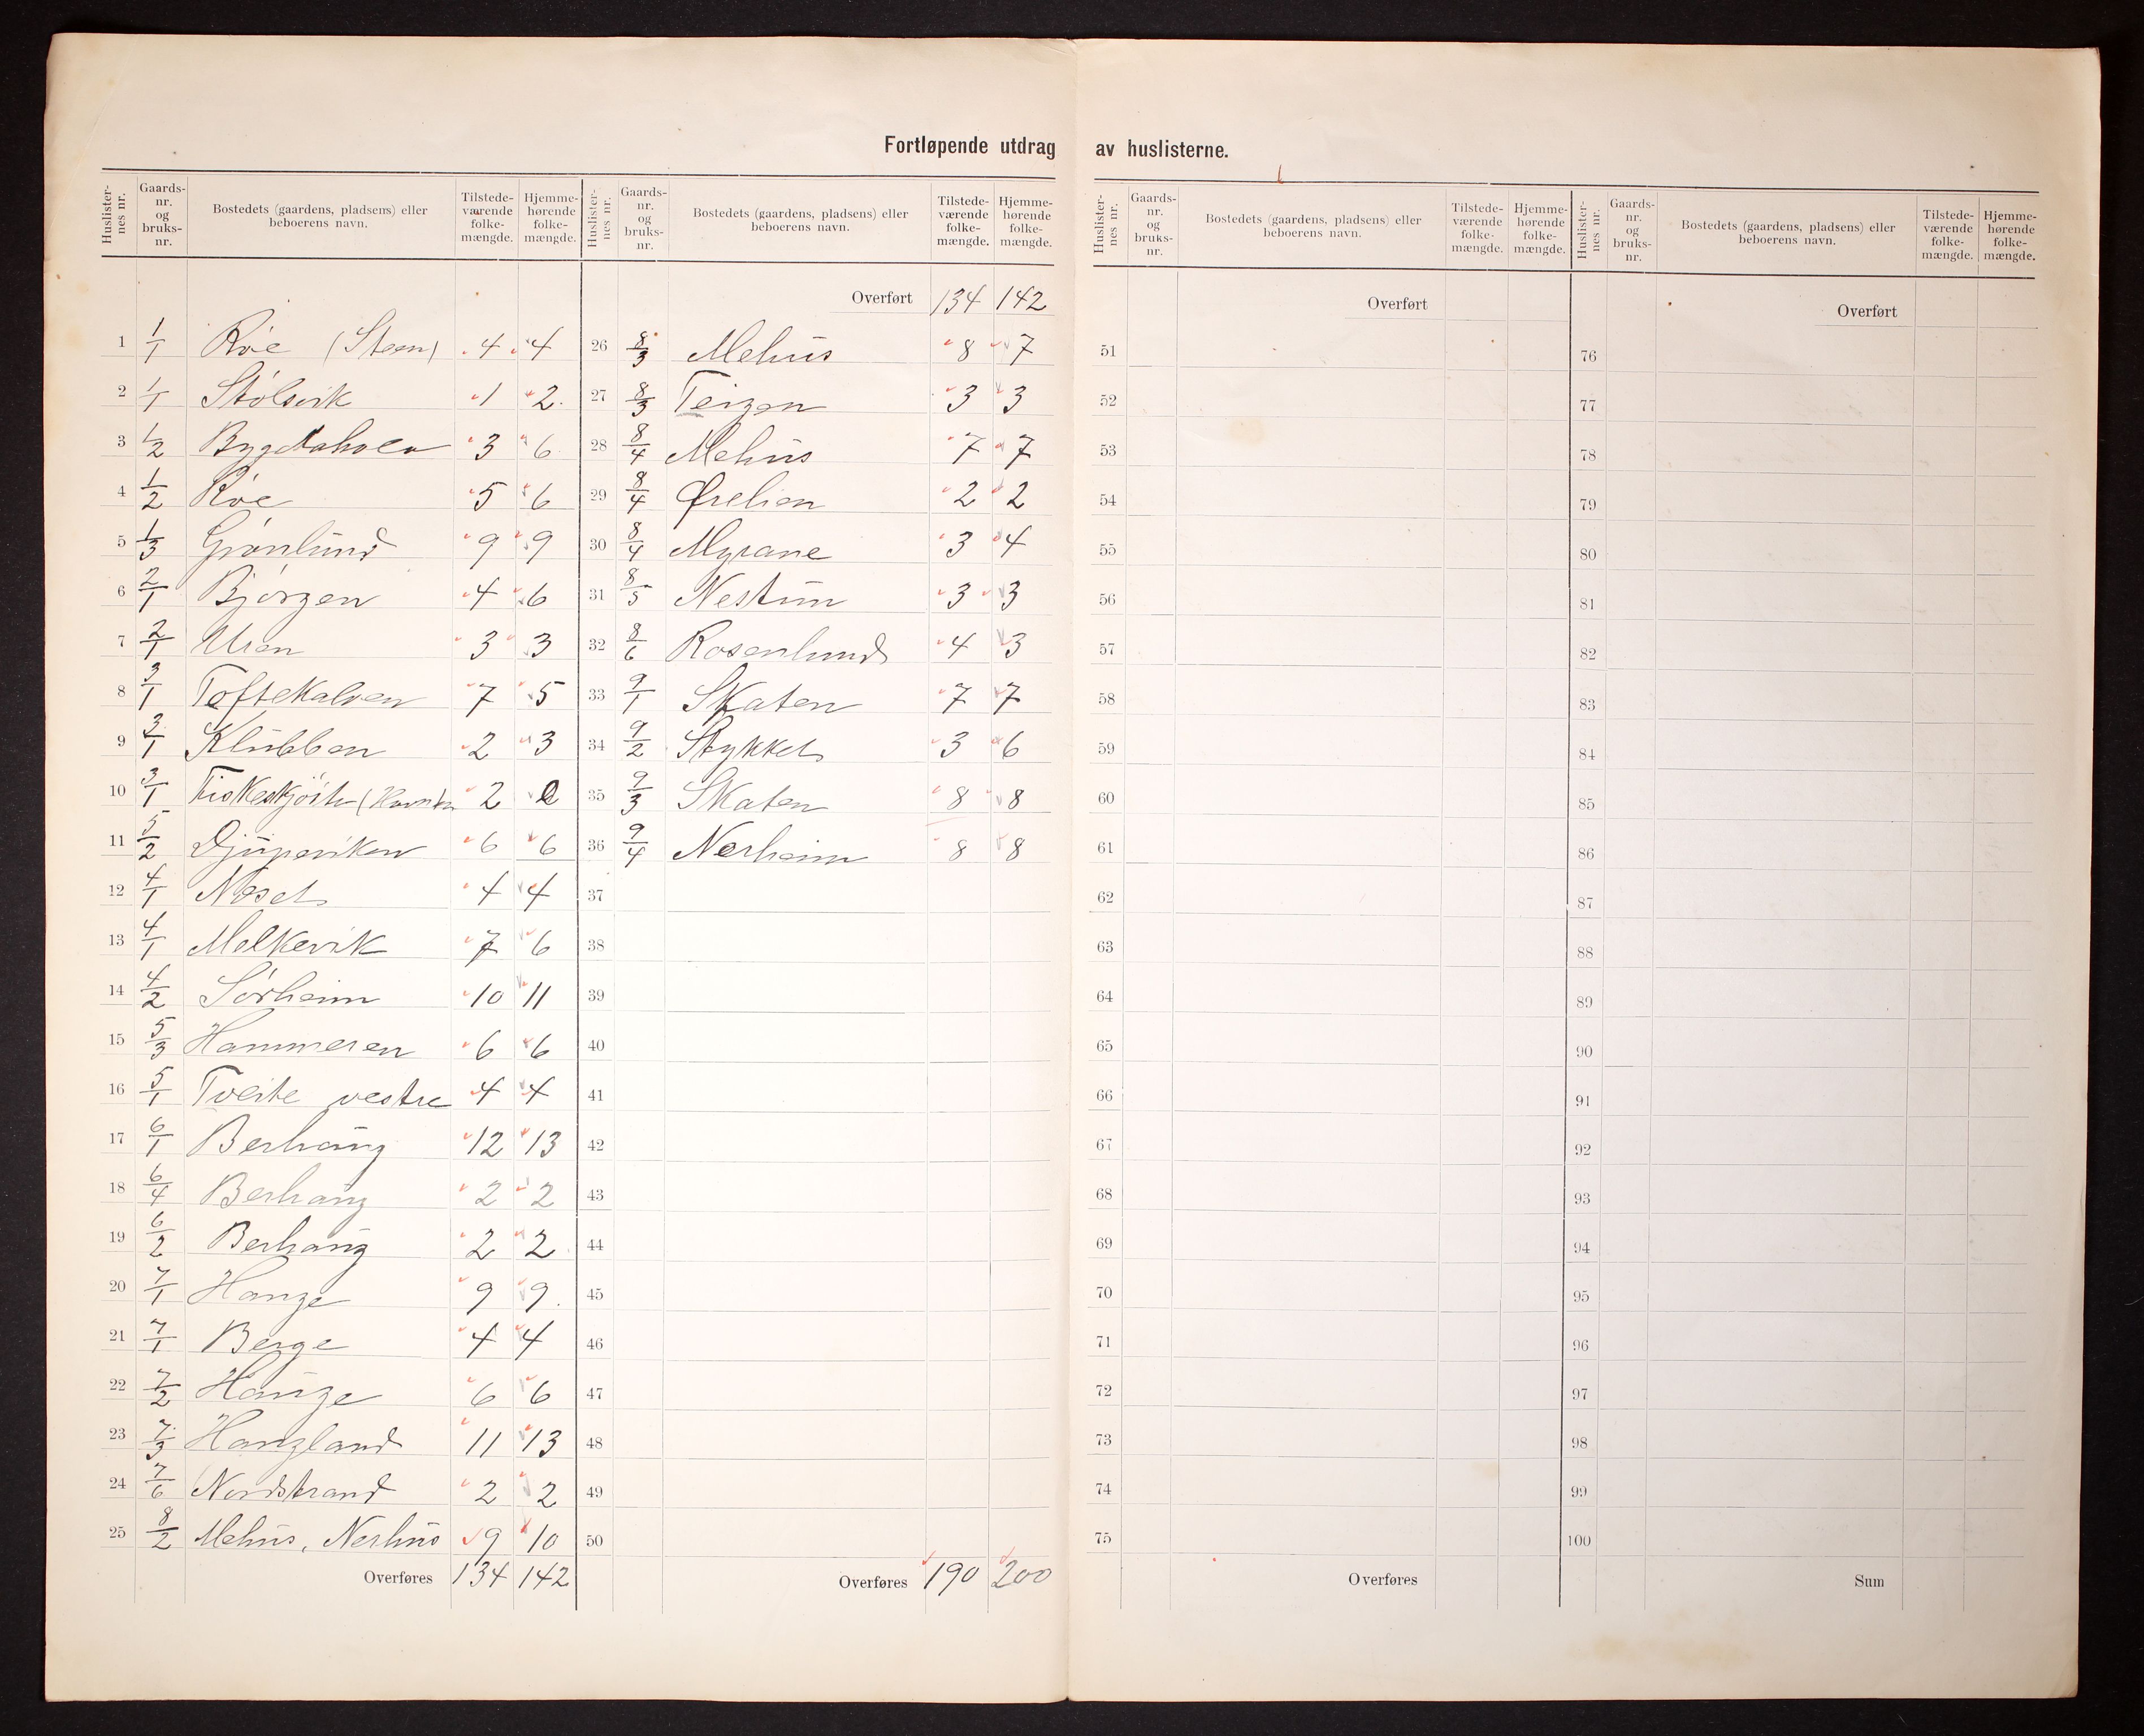 Fortløpende utdrag av huslisterne.
Huslister-nes nr. Gaards-nr. og bruks-nr. Bostedets (gaardens, pladsens) eller beboerens navn. Tilstede-værende folke-mængde. Hjemme-hørende folke-mængde.
1 1/1 Röe (Steen) 4 4
2 1/1 Stölsvik 1 2
3 1/2 3 6
4 1/2 Röe 5 6
5 1/3 Grönlund 9 9
6 2/1 Bjørgen 4 6
7 2/1 Uren 3 3
8 3/1 Toftekalven 7 5
9 3/1 Klubben 2 3
10 3/1 2
11 5/2 Djupeviken 6 6
12 4/1 Neset 4 4
13 4/1 Melkevik 7 6
14 4/2 Sörheim 10 11
15 5/3 Hammeren 6 6
16 5/1 Tveite vestre 4 4
17 6/1 Berhaug 12 13
18 6/4 Berhaug 2 2
19 6/2 Berhaug 2 2
20 7/1 Hauge 9 9
21 7/1 Berge 4 4
22 7/2 Hauge 6 6
23 7/3 Haugland 11 13
24 7/6 Nordstrand 2 2
25 8/2 Mehus, Nerhus 9 10
Overføres 134 142
Huslister-nes nr. Gaards-nr. og bruks-nr. Bostedets (gaardens, pladsens) eller beboerens navn. Tilstede-værende folke-mængde. Hjemme-hørende folke-mængde.
Overført 134 142
26 8/3 Mehus 8 7
27 8/3 Teigen 3 3
28 8/4 Mehus 7 7
29 8/4 Ørelien 2 2
30 8/4 Myrane 3 4
31 8/5 Nestun 3 3
32 8/6 Rosenlund 4 3
33 9/1 Skaten 7 7
34 9/2 Stykket 3 6
35 9/3 Skaten 8 8
36 9/4 Nerheim 8 8
37
38
39
40
41
42
43
44
45
46
47
48
49
50
Overføres 190 200
Huslister-nes nr. Gaards-nr. og bruks-nr. Bostedets (gaardens, pladsens) eller beboerens navn. Tilstede-værende folke-mængde. Hjemme-hørende folke-mængde.
Overført
51
52
53
54
55
56
57
58
59
60
61
62
63
64
65
66
67
68
69
70
71
72
73
74
75
Overføres
Huslister-nes nr. Gaards-nr. og bruks-nr. Bostedets (gaardens, pladsens) eller beboerens navn. Tilstede-værende folke-mængde. Hjemme-hørende folke-mængde.
Overført
76
77
78
79
80
81
82
83
84
85
86
87
88
89
90
91
92
93
94
95
96
97
98
99
100
Sum